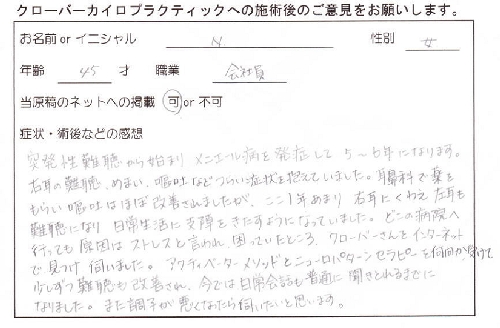 クローバーカイロプラクティックへの施術後のご意見をお願いします。
お名前 or イニシャル N. 性別 女
年齢 45 才 職業 会社員
当原稿のネットへの掲載 可 or 不可
症状・術後などの感想
突発性難聴から始まり メニエール病を発症して 5~6年になります。
右耳の難聴、めまい、嘔吐などつらい症状を抱えていました。耳鼻科で薬を
もらい嘔吐はほぼ改善されましたが、ここ1年あまり 右耳にくわえ左耳も
難聴になり 日常生活に支障をきたすようになっていました。どこの病院へ
行っても原因はストレスと言われ、困っていたところ、クローバーさんをインターネット
で見つけ 伺いました。アクティベーターメソッドとニューロパターンセラピーを何回か受けて
少しずつ難聴も改善され、今では日常会話も普通に聞きとれるまでに
なりました。また調子が悪くなったら伺いたいと思います。